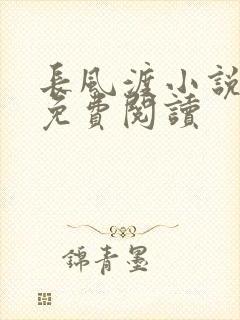 長風渡小說
免費閱讀
錦青墨